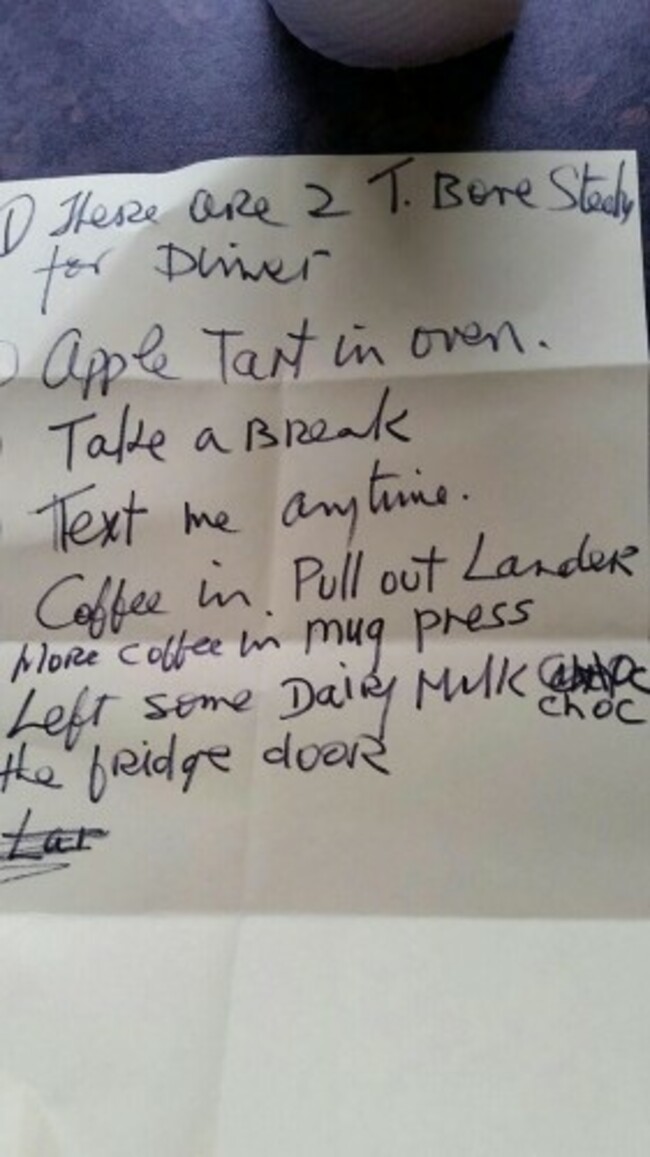 1) There are 2 T. Bone Steaks
for Dinner
Apple Tart in oven.
Take a Break
Text me anytime.
Coffee in. Pull out Larder
More coffee in mug press
Left some Dairy Milk choc
the fridge door